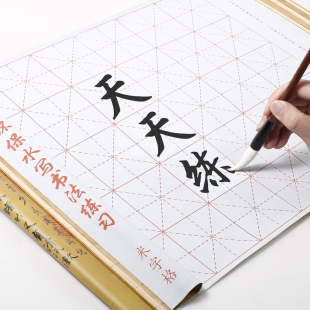 天天练
环保水写书法练习
米字格